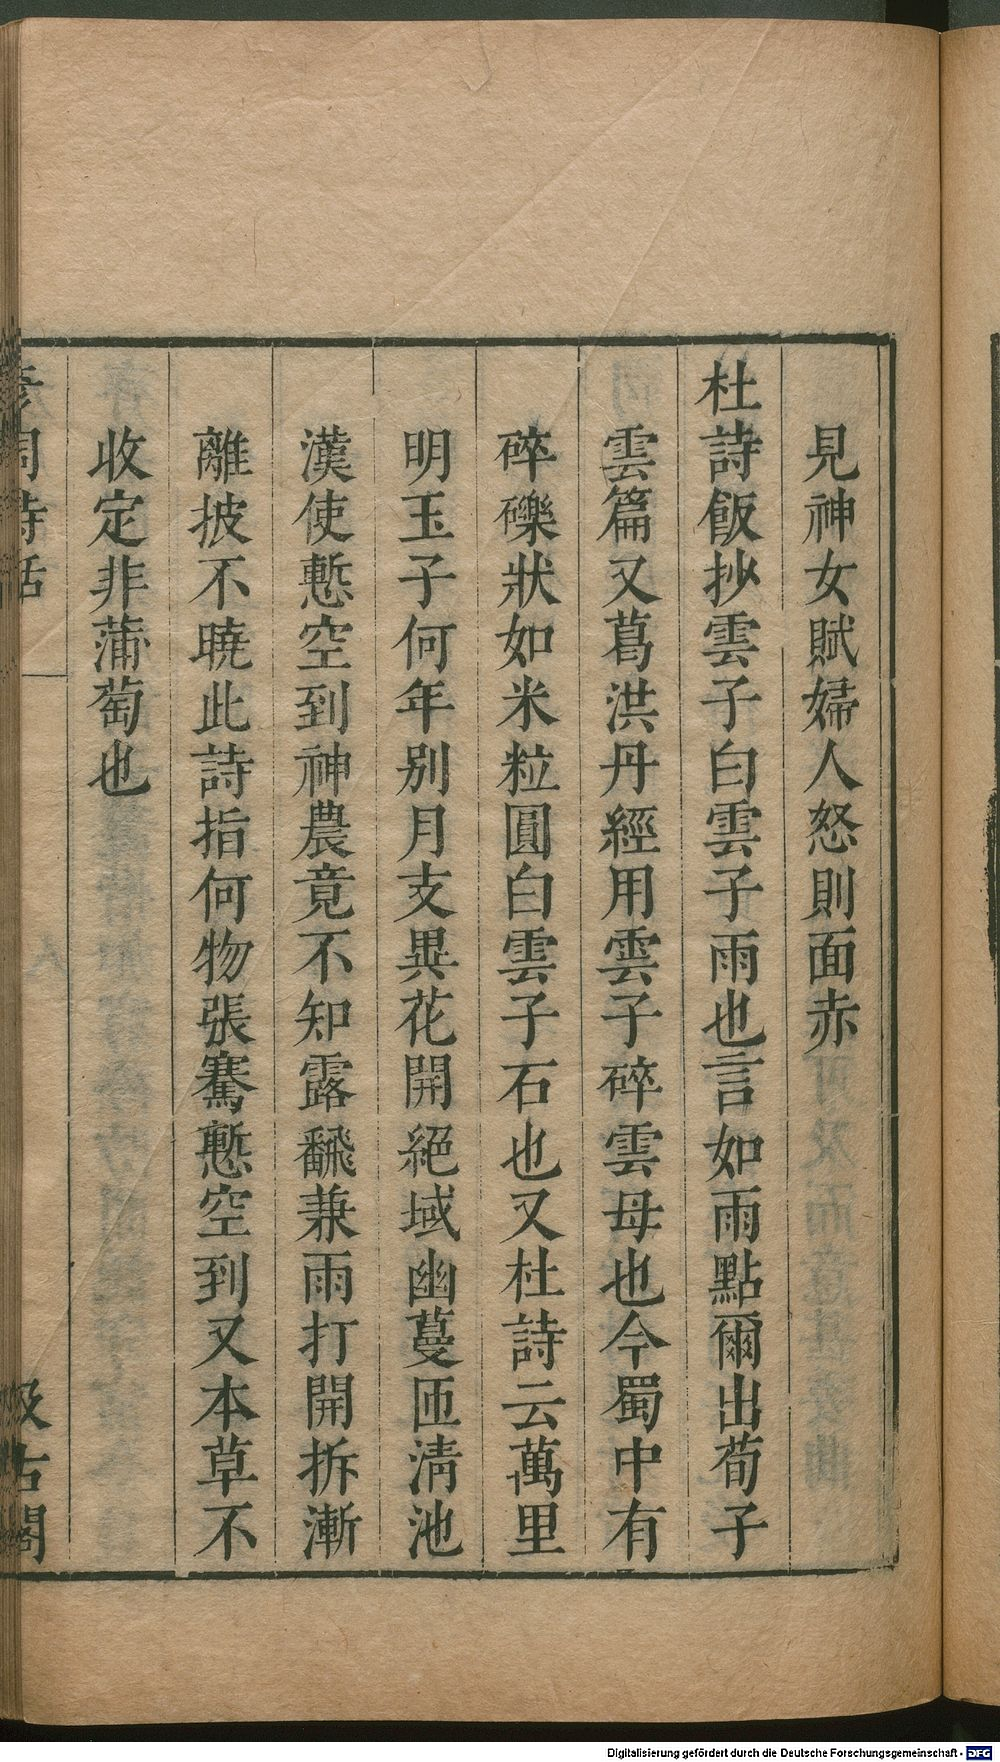 見神女賦婦人怒則面赤
杜詩飯抄雲子白雲子雨也言如雨點爾出荀子
雲篇又葛洪丹經用雲子碎雲母也今蜀中有
碎礫狀如米粒圓白雲子石也又杜詩云萬里
明玉子何年别月支異花開絕域幽蔓匝清池
漢使慙空到神農竟不知露翻兼雨打開拆漸
離披不曉此詩指何物張騫慙空到又本草不
收定非蒲萄也
彥周詩話
汲古閣
Digitalisierung gefördert durch die Deutsche Forschungsgemeinschaft - DFG